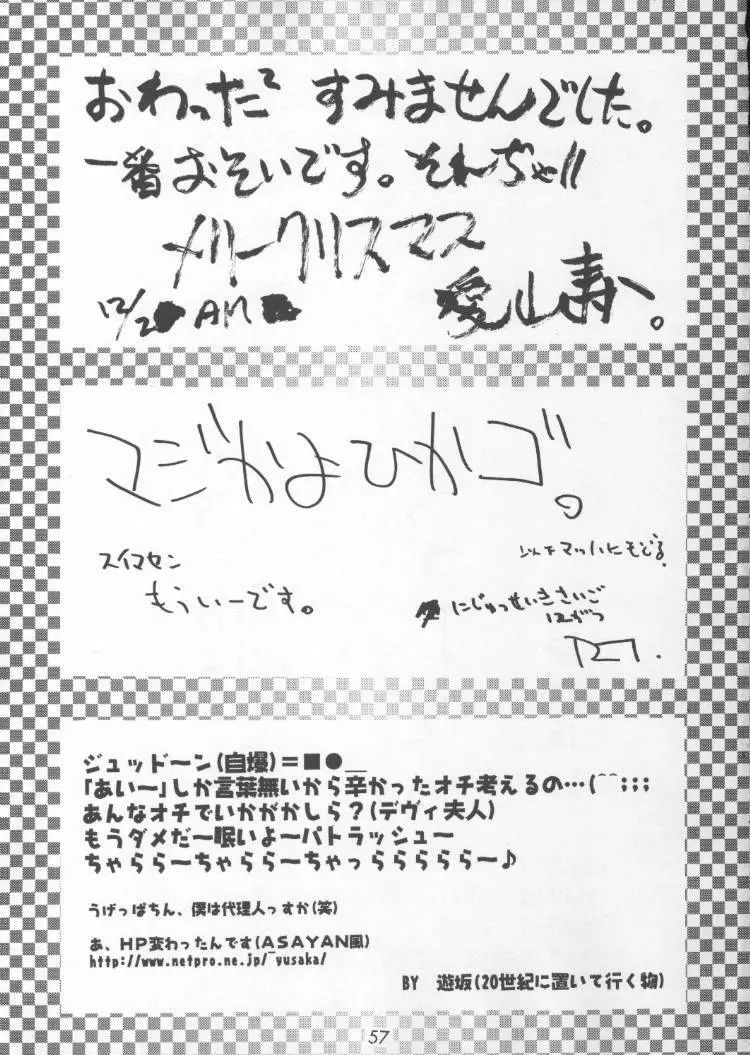 おわった〜 すみませんでした。
一番おそいです。それぢゃ!!
メリークリスマス
12/2 AM
愛山寿〜。
マジかよひかゴ。
スイマセン
もういーです。
にもどる。
にじゅっせいきさいご
12がつ
ジュッドーン(自爆)=■●＿
「あい〜」しか言葉無いから辛かったオチ考えるの…(^^;;;
あんなオチでいかがかしら?(デヴィ夫人)
もうダメだー眠いよーパトラッシュー
ちゃららーちゃららーちゃっらららららー♪
うげっぱちん、僕は代理人っすか(笑)
あ、HP変わったんです(ASAYAN風)
http://www.netpro.ne.jp/~yusaka/
BY 遊坂(20世紀に置いて行く物)
57